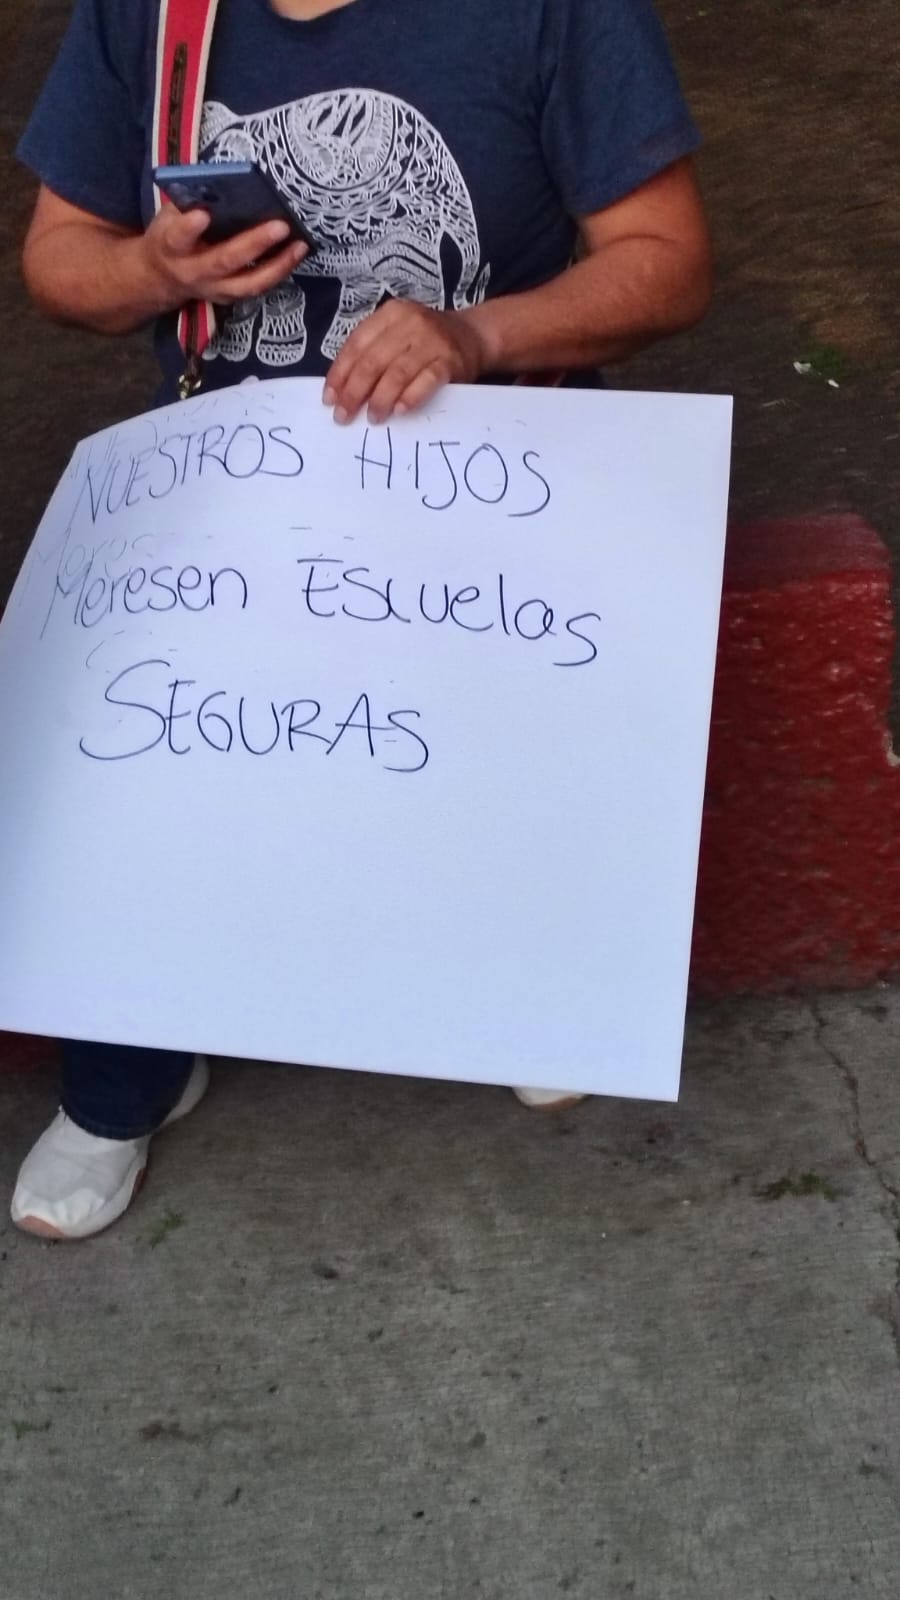 NUESTROS HIJOS
Meresen Escuelas
SEGURAS